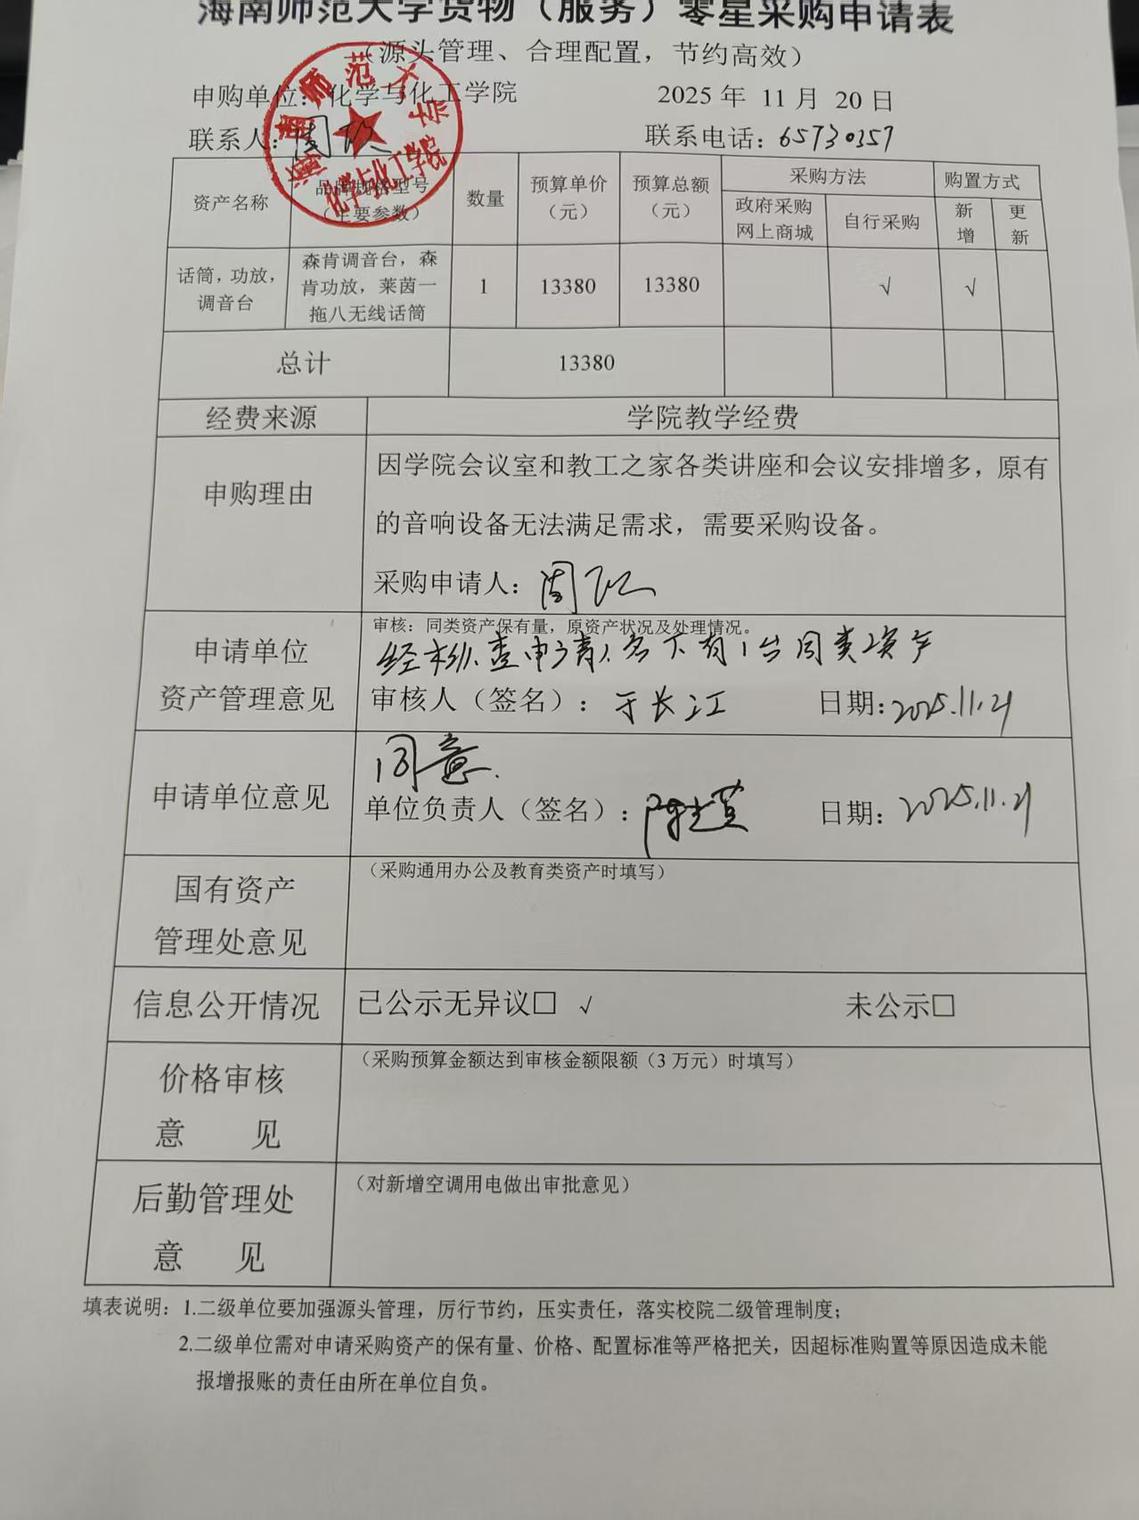 海南师范大学货物（服务）零星采购申请表
（源头管理、合理配置，节约高效）
申购单位：化学与化工学院 2025 年 11 月 20 日
联系人：周 联系电话：65730357
海南师范大学
化学与化工学院
资产名称 品牌规格型号（主要参数） 数量 预算单价（元） 预算总额（元） 采购方法 购置方式
政府采购网上商城 自行采购 新增 更新
话筒，功放，调音台 森肯调音台，森肯功放，莱茵一拖八无线话筒 1 13380 13380 √ √
总计 13380
经费来源 学院教学经费
申购理由 因学院会议室和教工之家各类讲座和会议安排增多，原有
的音响设备无法满足需求，需要采购设备。
采购申请人：周
申请单位资产管理意见 审核：同类资产保有量，原资产状况及处理情况。
经核查申请人名下有1台同类资产
审核人（签名）：于长江 日期：2025.11.21
申请单位意见 同意.
单位负责人（签名）：陈 日期：2025.11.21
国有资产管理处意见 （采购通用办公及教育类资产时填写）
信息公开情况 已公示无异议□ √ 未公示□
价格审核意 见 （采购预算金额达到审核金额限额（3 万元）时填写）
后勤管理处意 见 （对新增空调用电做出审批意见）
填表说明：1.二级单位要加强源头管理，厉行节约，压实责任，落实校院二级管理制度；
2.二级单位需对申请采购资产的保有量、价格、配置标准等严格把关，因超标准购置等原因造成未能
报增报账的责任由所在单位自负。